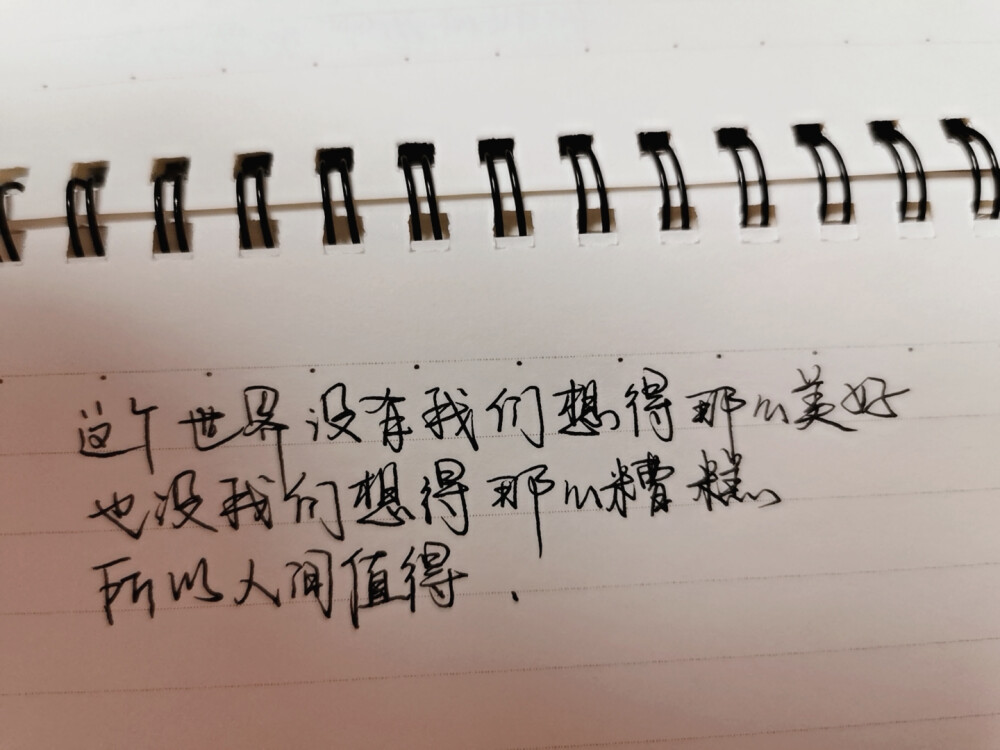 这个世界没有我们想得那么美好
也没我们想得那么糟糕
所以人间值得.